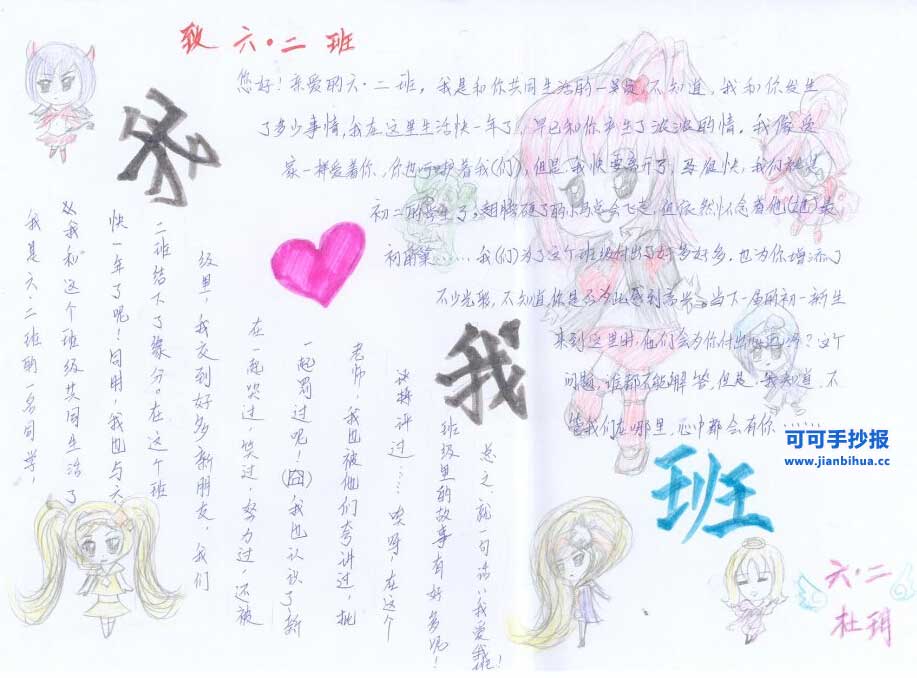 致 六·二 班
您好！亲爱的六·二班，我是和你共同生活的一员，不知道，我和你发生
了多少事情，我在这里生活快一年了，早已和你产生了浓浓的情。我像爱
家一样爱着你，你也呵护着我(们)，但是我快要离开了，马很快，我们就是
初二的学生了，翅膀硬了的小鸟总会飞走，但依然怀念着他(她)最
初的巢……我(们)为了这个班级付出了好多好多，也为你增添了
不少光彩，不知道你是否为此感到高兴，当下一届的初一新生
来到这里时，他们会为你付出吗？这个
问题，谁都不能解答，但是，我知道，不
管我们在哪里，心中都会有你
我
班
我是六·二班的一名同学，
我和这个班级共同生活了
快一年了呢！同时，我也与六
二班结下了缘分。在这个班
级里，我交到好多新朋友，我们
在一起哭过，笑过，努力过，还被
一起罚过呢！(囧)我也认识了新
老师，我也被他们夸讲过，批
评过……唉呀，在这个
班级里的故事有好多呢！
总之，就一句话：我爱我班！
可可手抄报
www.jianbihua.cc
六·二
杜玥